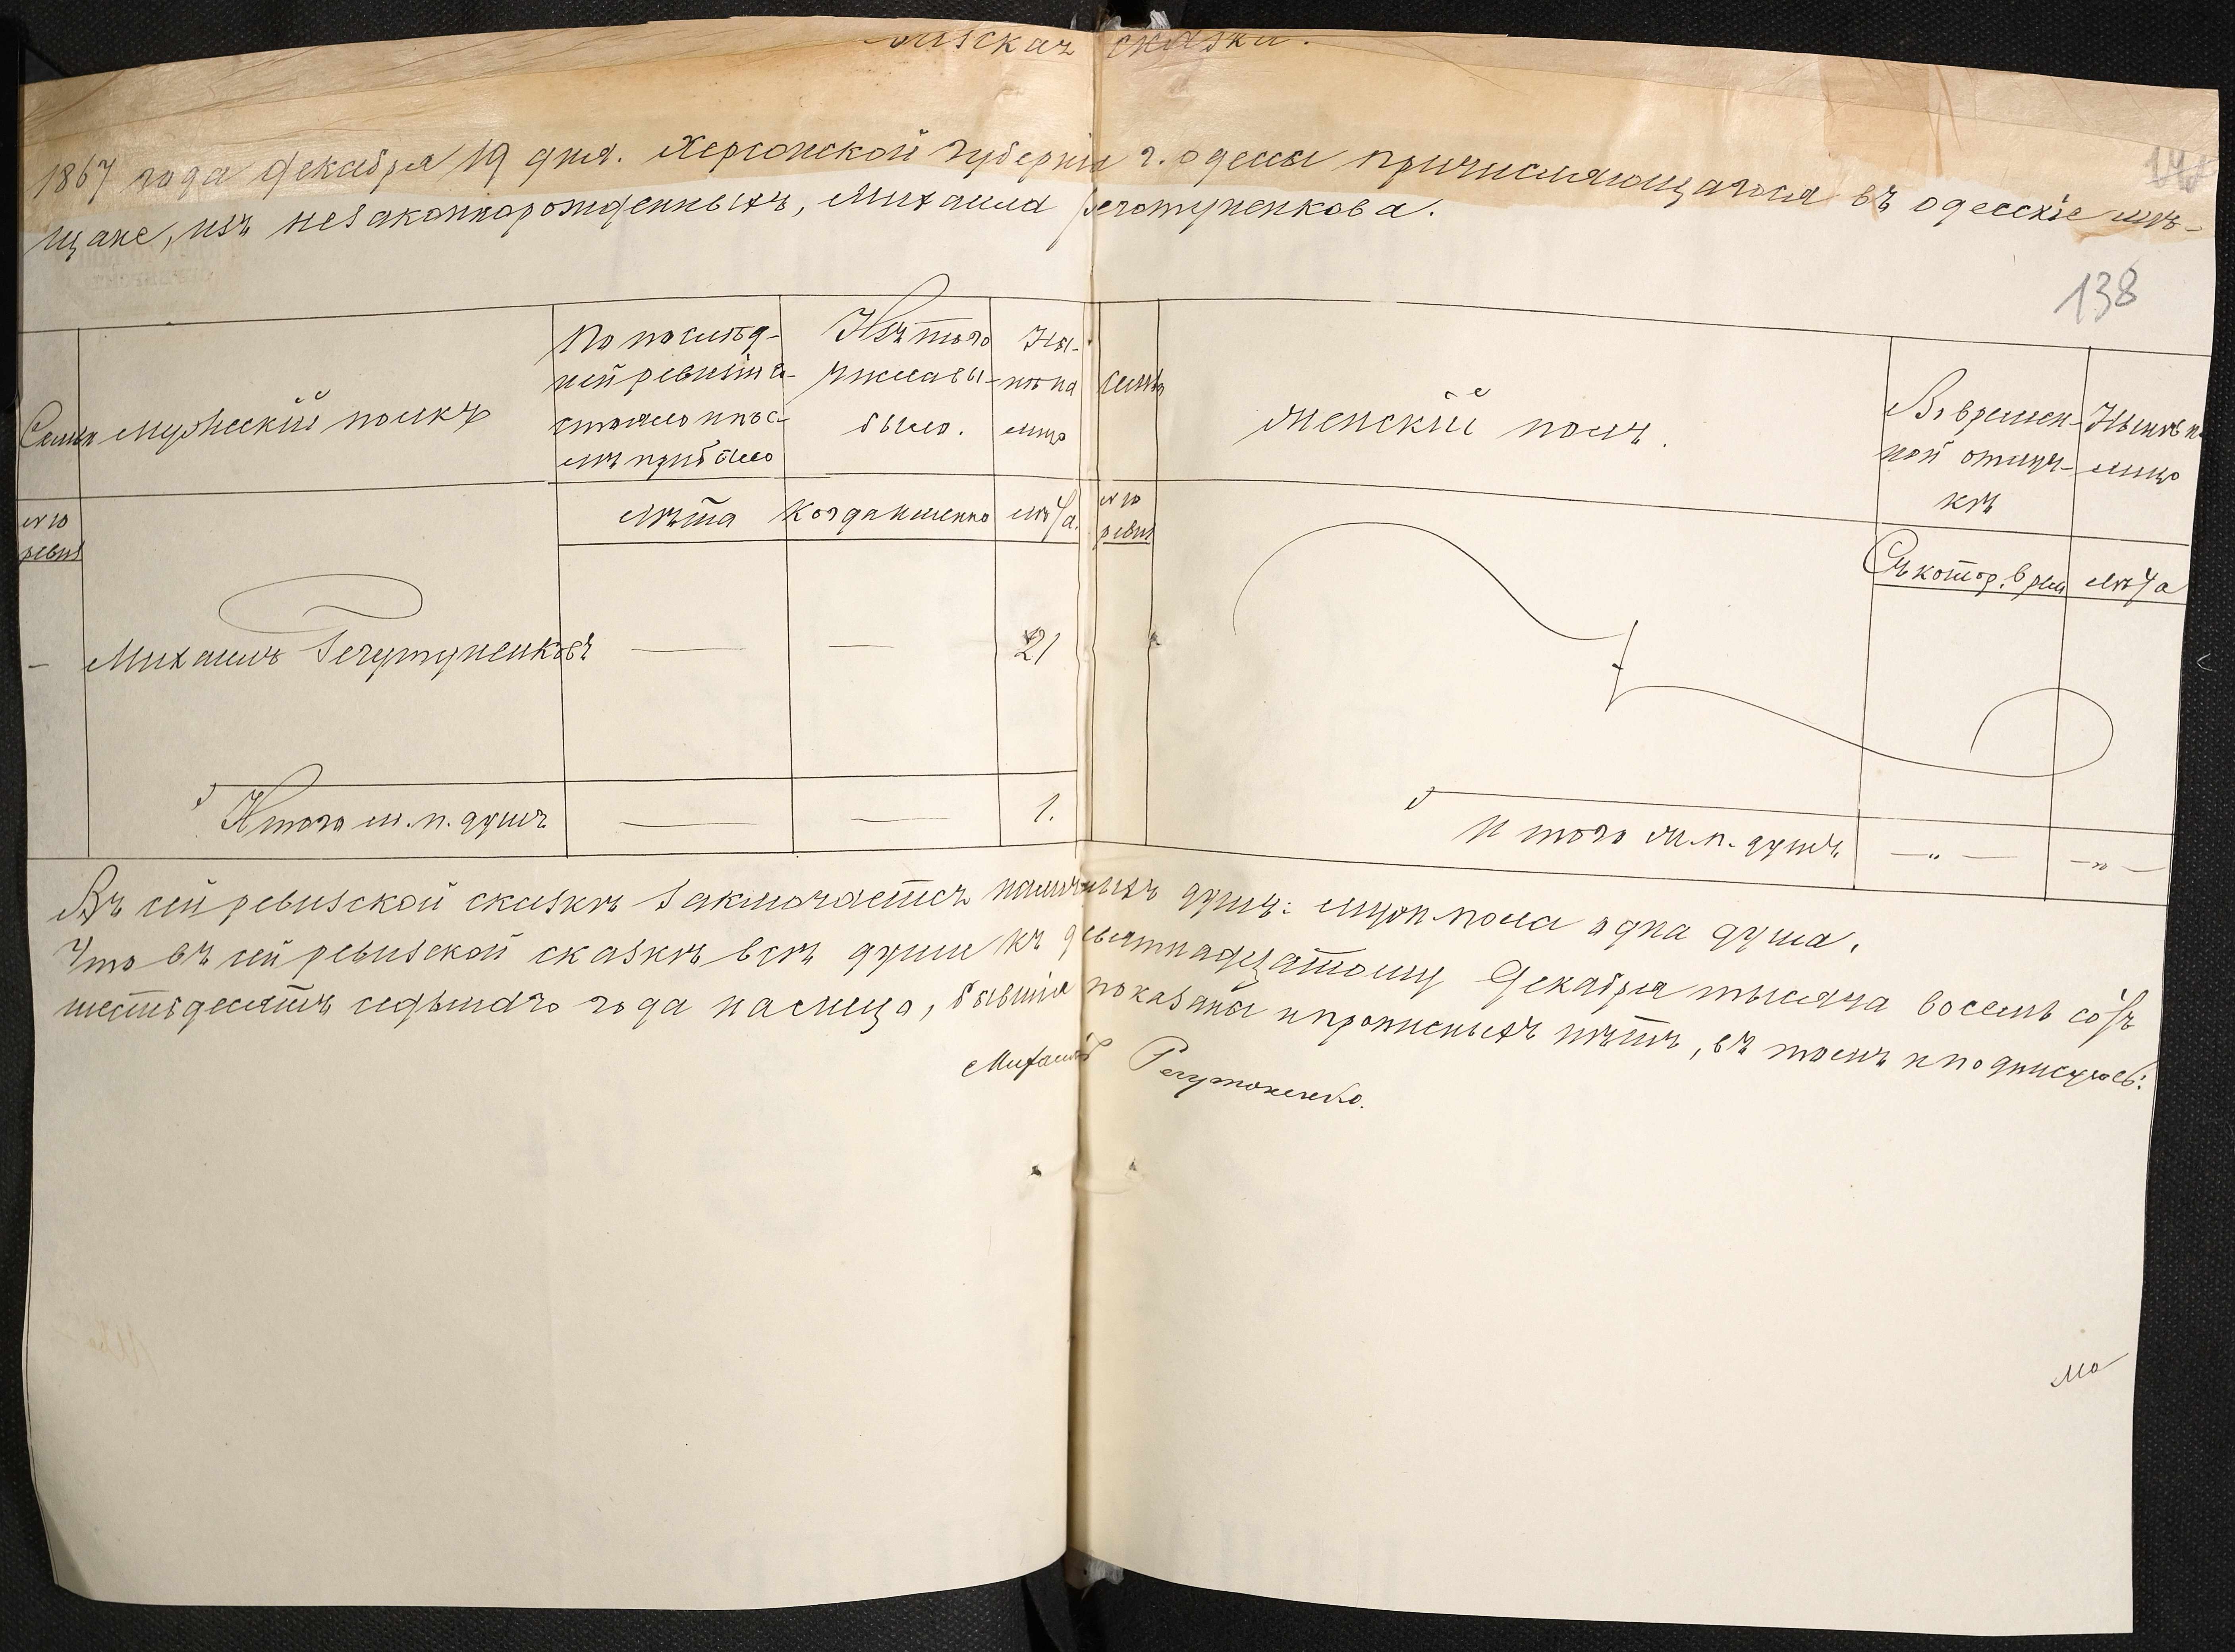 визская сказка.
1867 года Декабря 19 дня. Херсонской губерніи г. Одессы причисляющагося въ одесскіе мѣ-
щане, изъ незаконнорожденныхъ, Михаила
138
Семья
Мужескій полкъ
По послѣд-
ней ревизіи со-
стояло и пос-
лѣ прибыло
Изъ того
числа вы-
было.
Ны-
нѣ на
лицо
Семья
Женскій полъ.
Въ времен-
ной отлуч-
кѣ
Нынѣ на
лицо
№ 10
ревиз
Лѣта
Когда именно
Лѣта.
№ 10
ревиз
Съ котор. врем
Лѣта
—
Михаилъ Речутуненковъ
—
—
21
Итого м. п. душъ
—
—
1.
Итого ж. п. душъ
— „ —
— „ —
Въ сей ревизской сказкѣ заключается наличныхъ душъ: муж. пола одна душа.
Что въ сей ревизской сказкѣ всѣ души къ девятнадцатому Декабря тысяча восемь сотъ
шестьдесятъ седьмаго года на лицо, бывшія показаны и прописныхъ нѣтъ, въ томъ и подписуюсь:
Михаилъ Речутоненко.